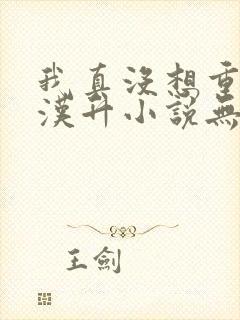 我真沒想重
漢升小說無
王劍